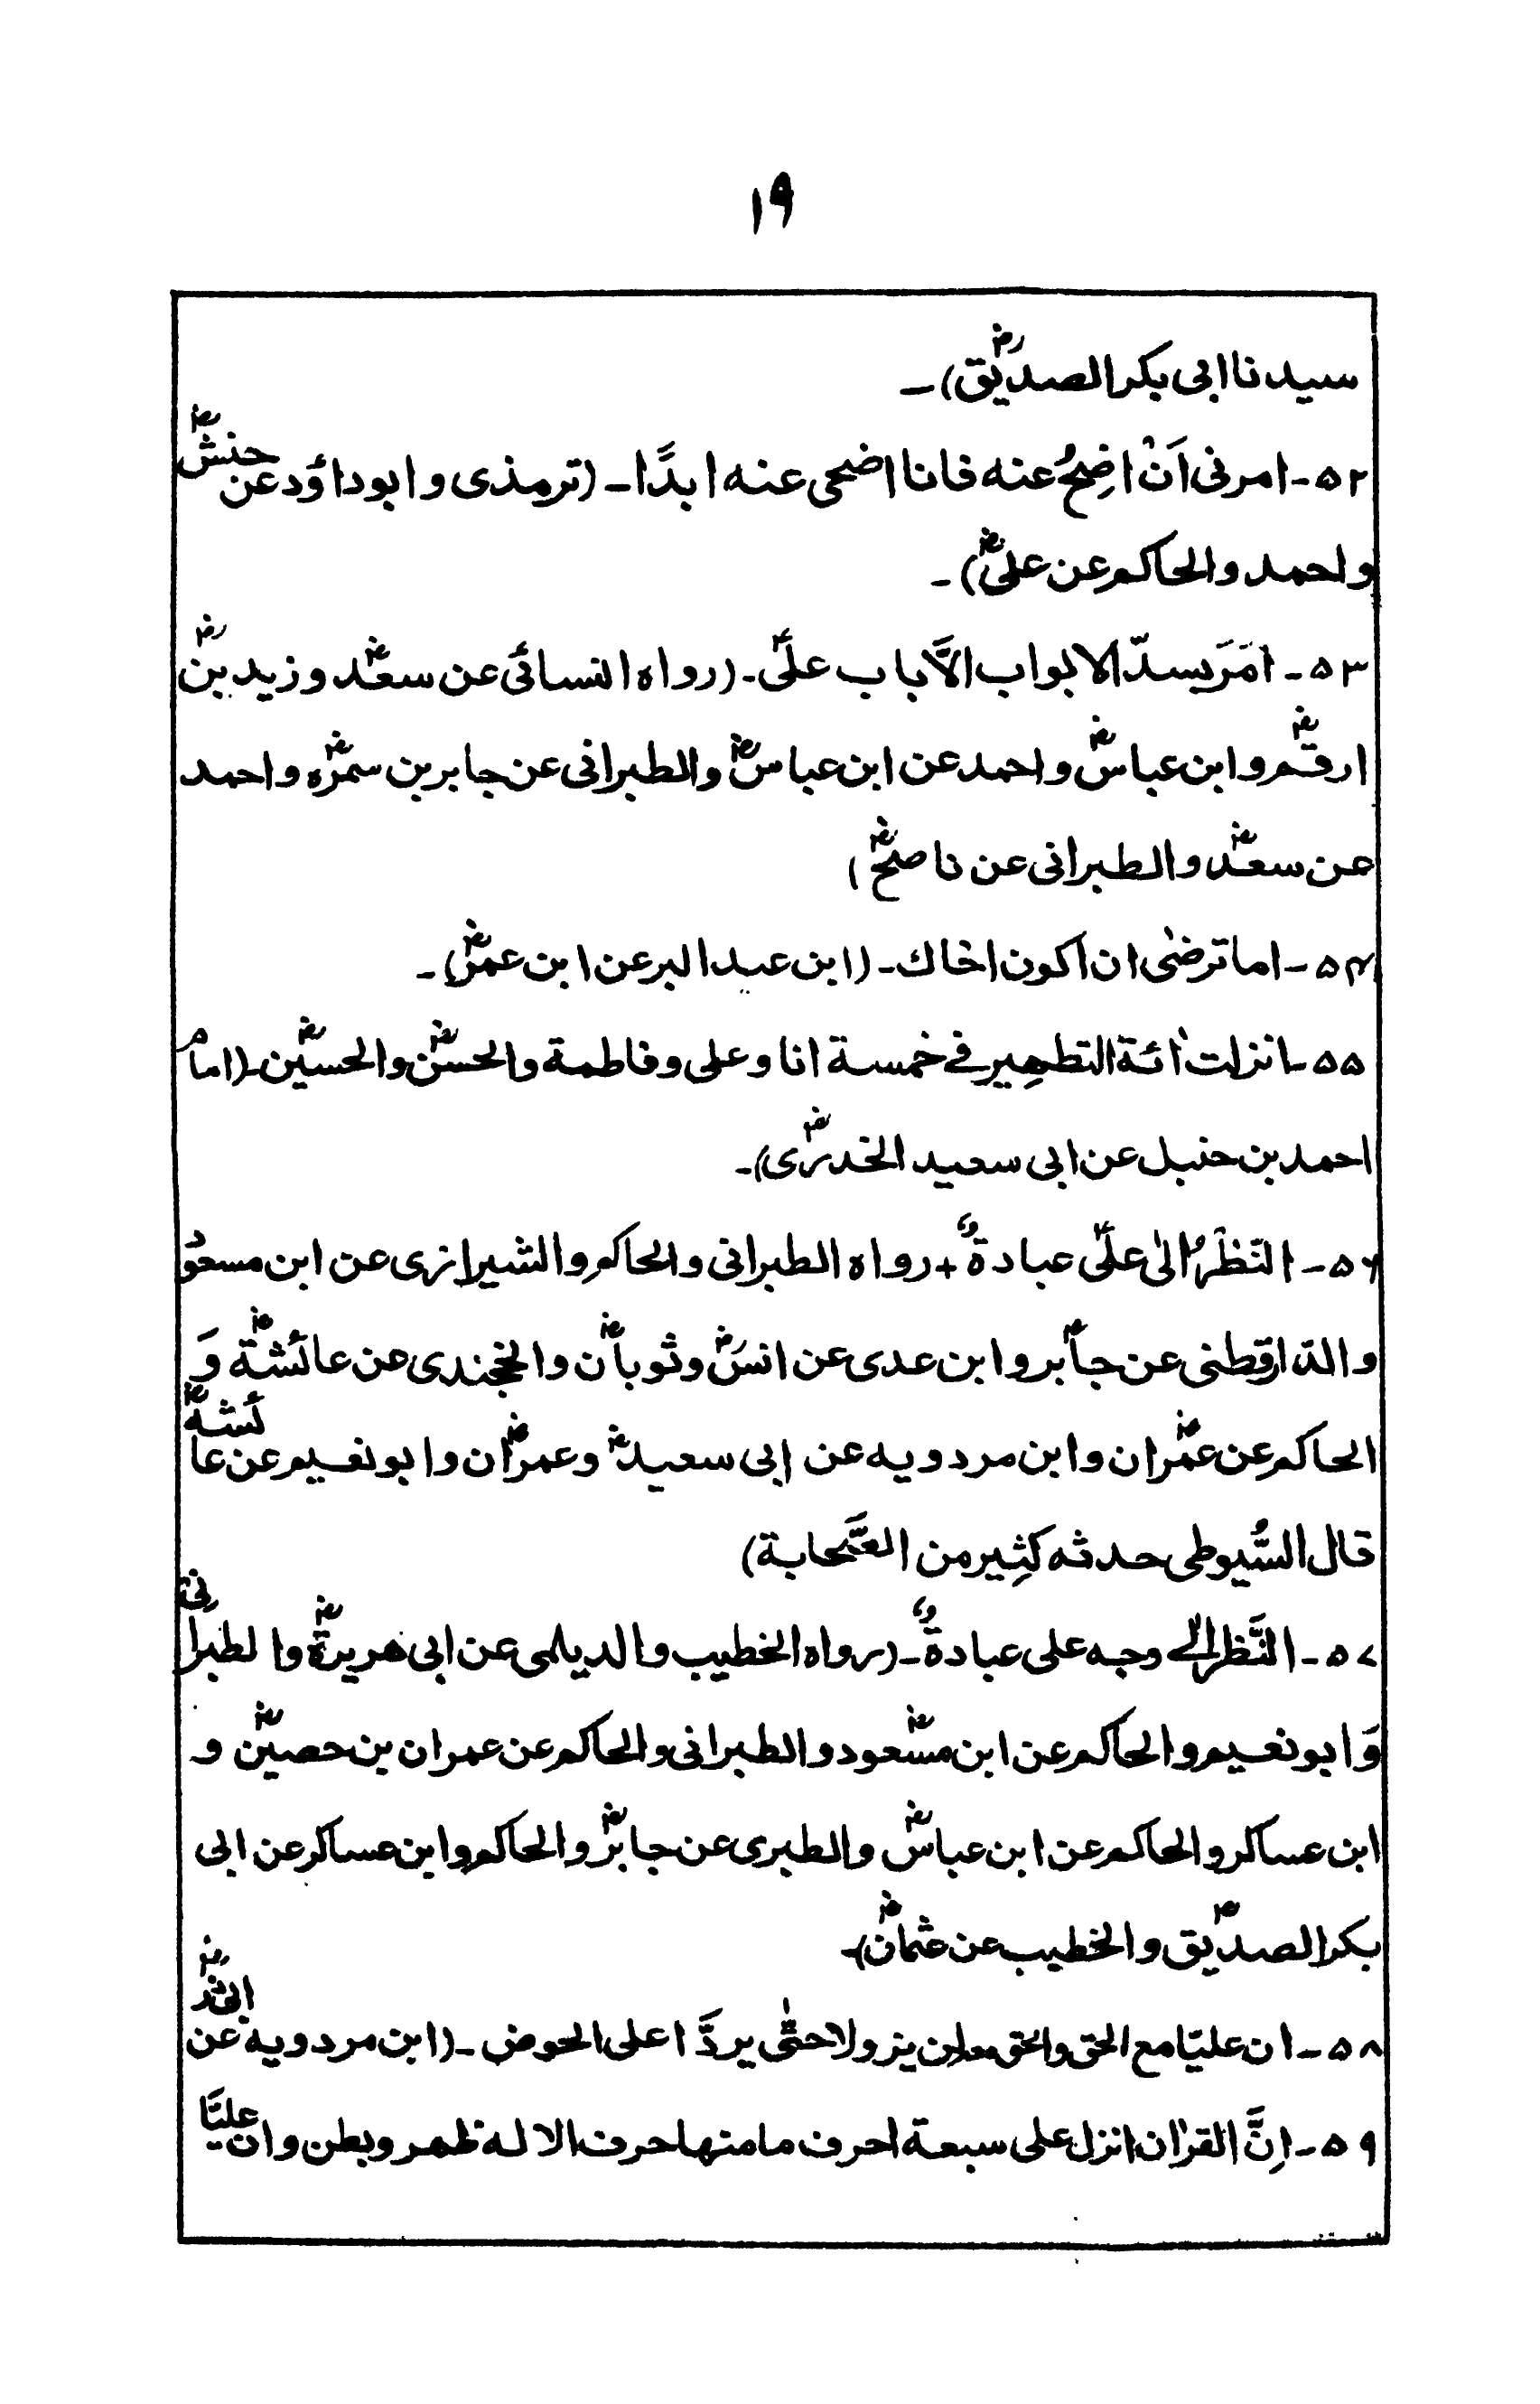 ۱۹
سیدنا ابی بکر الصدیقؓ)۔
۵۲۔ امرنی اَنْ اضِحُّ عنہ فانا اضحی عنہ ابدًا۔ (ترمذی و ابوداؤد عن حنشؓ
واحمد والحاکم عن علیؓ)۔
۵۳۔ اَمَرَ بسدّ الابواب الّاباب علیؑ۔ (رواہ النسائی عن سعدؓ و زید بنؓ
ارقم و ابن عباسؓ واحمد عن ابن عباسؓ والطبرانی عن جابر بن سمرہؓ واحمد
عن سعدؓ والطبرانی عن ناصحؓ)
۵۴۔ اما ترضٰی ان اکون اخاك۔ (ابن عبد البر عن ابن عمرؓ)۔
۵۵۔ انزلت اٰئۃ التطھیر فے خمسۃ انا وعلی وفاطمۃ والحسنؓ والحسینؓ۔ (امام
احمد بن حنبل عن ابی سعید الخدریؓ)۔
۵۶۔ النّظَرُ الیٰ علیؑ عبادۃٌ + رواہ الطبرانی والحاکم والشیرازی عن ابن مسعودؓ
والدارقطنی عن جابرؓ وابن عدی عن انسؓ وثوبانؓ والخجندی عن عائشۃؓ وَ
الحاکم عن عمرانؓ وابن مردویہ عن ابی سعیدؓ وعمرانؓ وابو نعیم عن عائشہؓ
قال السُّیوطی حدثہ کثِیر من الصَّحابۃ)
۵۷۔ النَّظر الیٰ وجہ علی عبادۃٌ۔ (رواہ الخطیب والدیلمی عن ابی ھریرۃؓ والطبرانی
وَابو نعیم والحاکم عن ابن مسعودؓ والطبرانی والحاکم عن عمران بن حصینؓ و
ابن عساکر والحاکم عن ابن عباسؓ والطبری عن جابرؓ والحاکم وابن عساکر عن ابی
بکر الصدیقؓ والخطیب عن عثمانؓ)۔
۵۸۔ ان علیّا مع الحق والحق معہ لن یزولا حتّٰی یردَّا علی الحوض۔ (ابن مردویہ عن ابی ذرؓ
۵۹۔ اِنَّ القراٰن انزل علی سبعۃ احرف ما منھا حرف الا لہ ظھر وبطن وان علیًّا